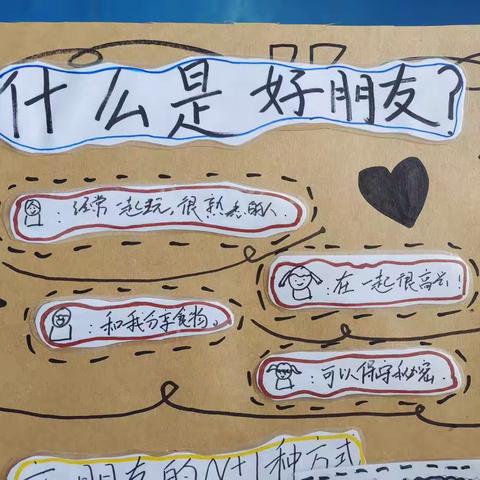 什么是好朋友?
:经常一起玩,很熟悉的人.
:在一起很高兴.
:和我分享食物。
:可以保守秘密.
朋友的N+1种方式